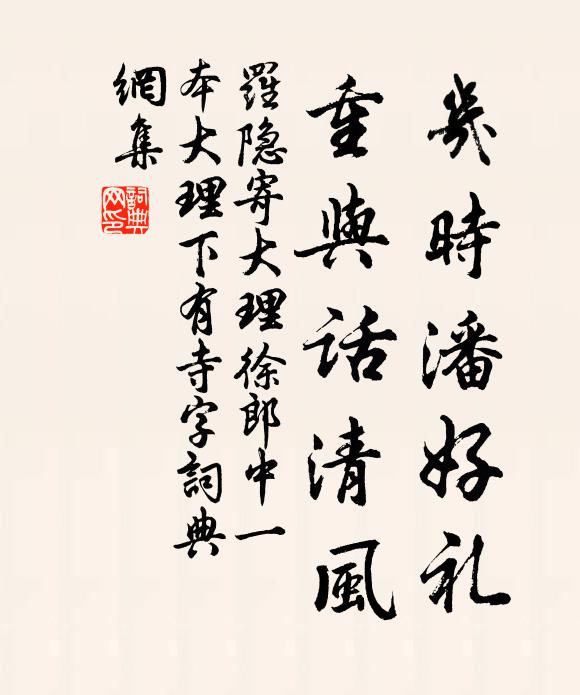 幾時潘好礼
重與話清風
羅隐寄大理徐郎中一
本大理下有寺字詞典
網集
詞典
网印